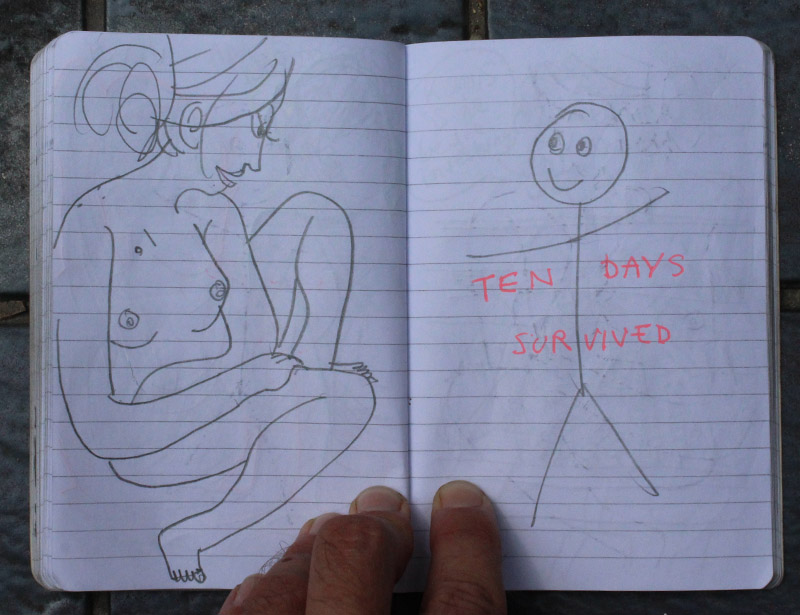 TEN DAYS
SURVIVED